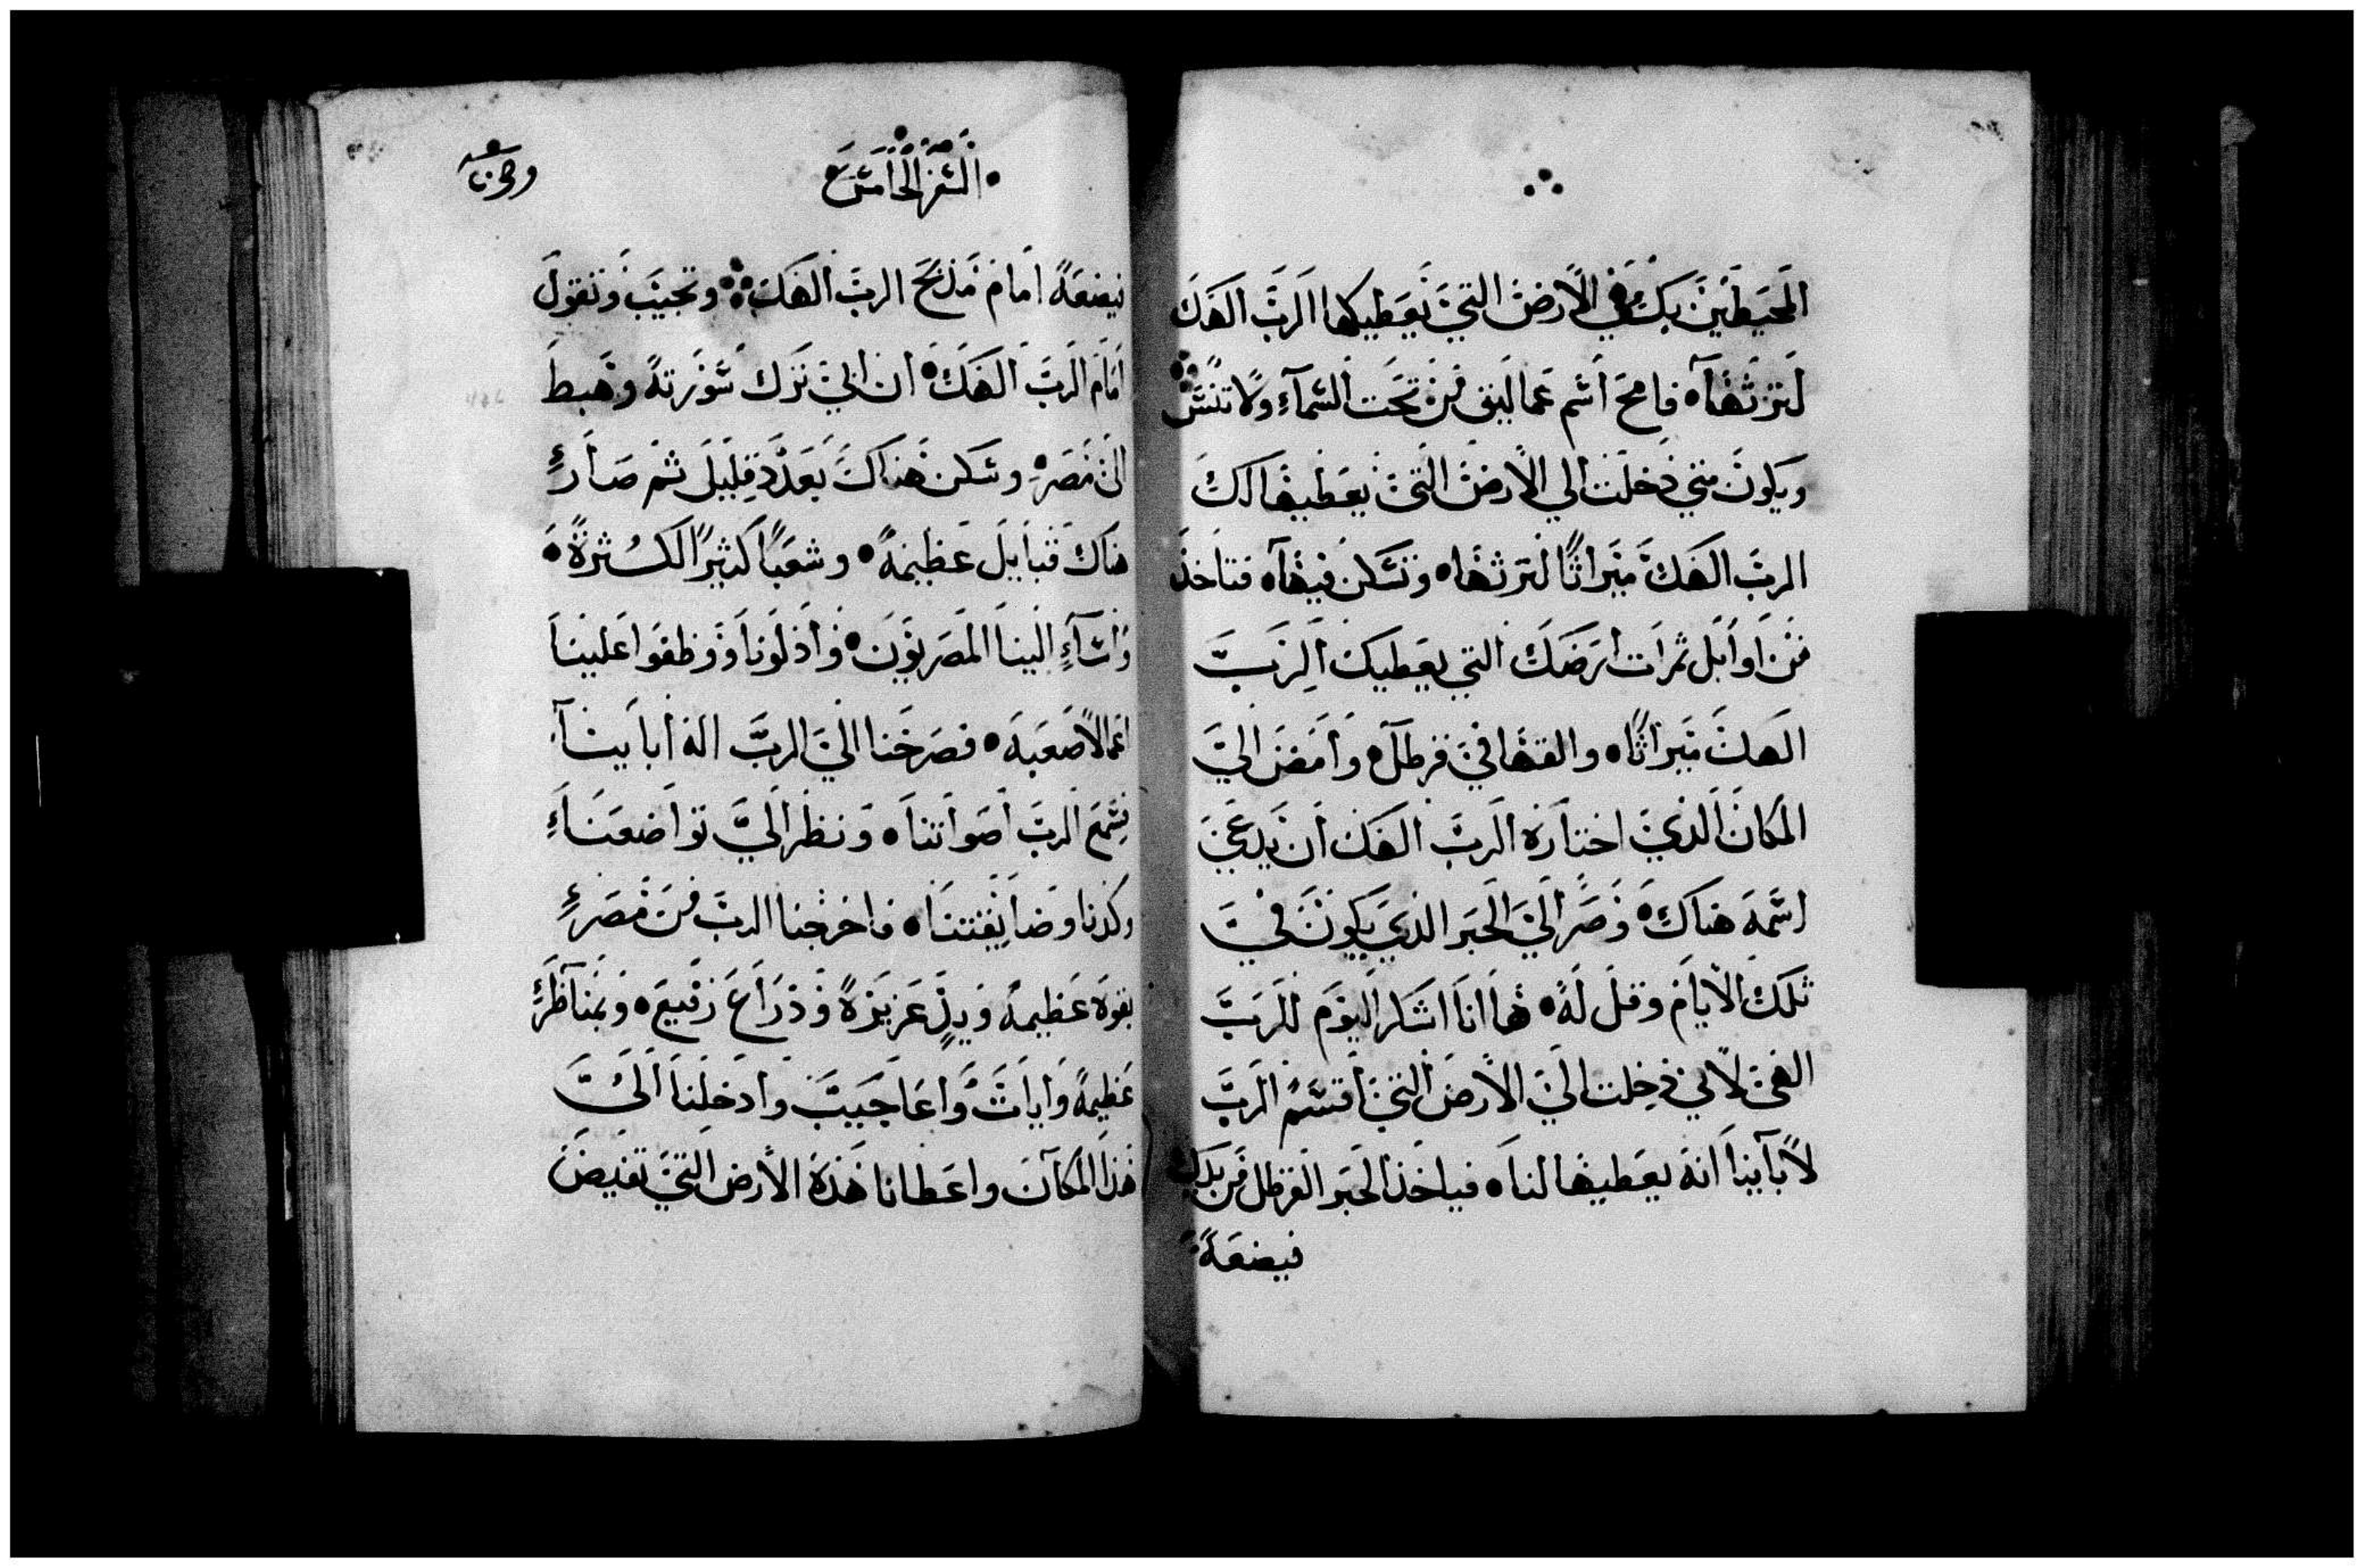 المحيطين بك في الأرض التي يعطيكها الرب الهك
لترثها فامح اسم عماليق من تحت السماء ولا تنس
ويكون متي دخلت الي الأرض التي يعطيها لك
الرب الهك ميراثًا لترثها وتسكن فيها فتاخذ
من اوايل ثمرات ارضك التي يعطيك الرب
الهك ميراثًا والقها في قرطل وامض الي
المكان الذي اختاره الرب الهك ان يدعي
اسمه هناك وصر الي الحبر الذي يكون في
تلك الأيام وقل له ها انا اشكر اليوم للرب
الهي لاني دخلت الي الأرض التي اقسم الرب
لأبآينا انه يعطيها لنا فياخذ الحبر القرطل من يدك
فيضعه
السفر الخامس
فيضعه امام مذبح الرب الهك وتجيب وتقول
امام الرب الهك ان ابي ترك سورية وهبط
الى مصر وسكن هناك بعدد قليل ثم صار
هناك قبايل عظيمة وشعبًا كثيرًا لكثرة
واسآء الينا المصريون واذلونا ووظفوا علينا
اعمالاً صعبة فصرخنا الي الرب اله ابايينا
فسمع الرب اصواتنا ونظر الي تواضعنا
وكدنا وضايقتنا فاخرجنا الرب من مصر
بقوة عظيمة ويد عزيزة وذراع رفيع وبمناظر
عظيمة وايات واعاجيب وادخلنا الي
هذا المكان واعطانا هذه الأرض التي تفيض